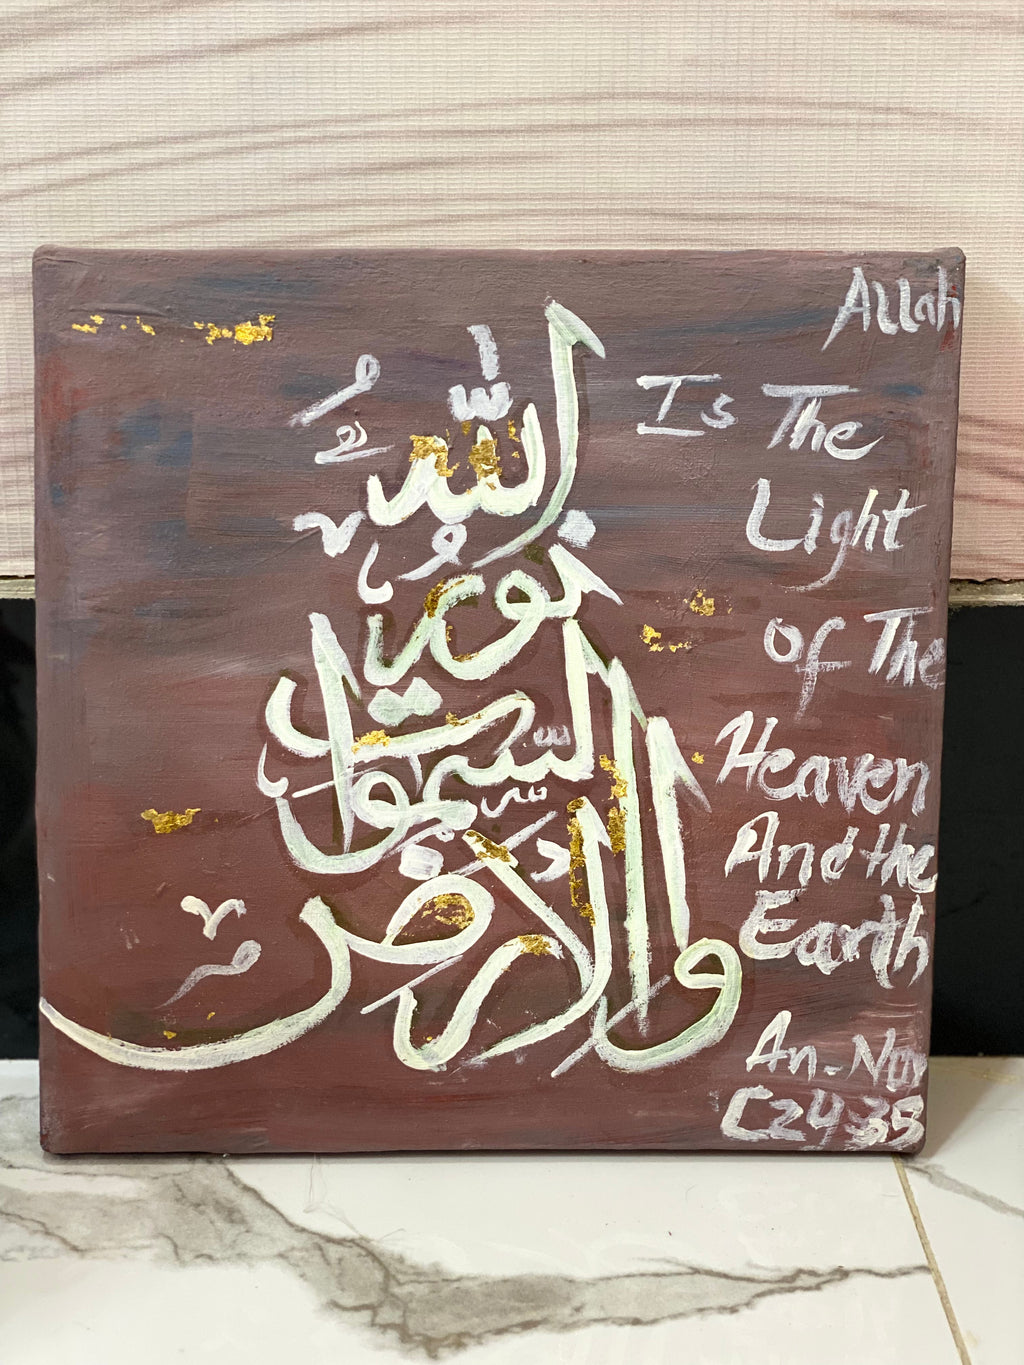 الله
نور
السموات
والارض
Allah
Is The
Light
Of The
Heaven
And the
Earth
An-Nur
C24:35